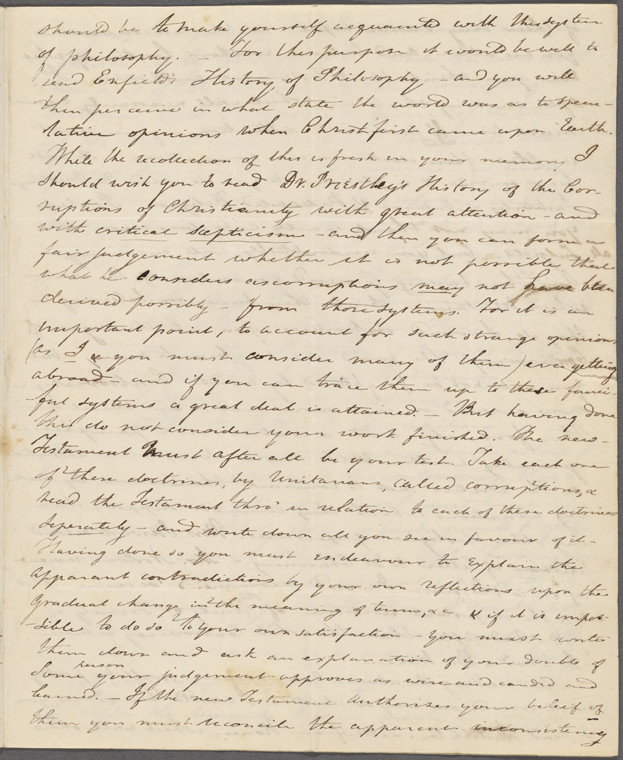 should be to make yourself acquainted with this system
of philosophy. — For this purpose it would be well to
read Enfield's History of Philosophy — and you will
then perceive in what state the world was as to specu-
lative opinions when Christ first came upon Earth.
While the recollection of this is fresh in your memory I
should wish you to read Dr. Priestley's History of the Cor-
ruptions of Christianity with great attention — and
with critical scepticism — and then you can form a
fair judgement whether it is not possible that
what he considers as corruptions may not have been
derived possibly — from those systems. For it is an
important point, to account for such strange opinions
(as I & you must consider many of them) ever getting
abroad — and if you can trace them up to these fanci-
ful systems a great deal is attained — But having done
this do not consider your work finished. The new-
Testament must after all be your test. Take each one
of these doctrines, by Unitarians, called corruptions, &
read the Testament thro' in relation to each of these doctrines
seperately — and write down all you see in favour of it —
Having done so you must endeavour to explain the
apparant contradictions by your own reflections upon the
gradual change in the meaning of terms, &c. & if it is impos-
sible to do so to your own satisfaction — you must write
them down and ask an explanation of your doubts of
some person your judgement approves as wise and candid and
learned. — If the new Testament authorises your belief of
them you must reconcile the apparent inconsistency